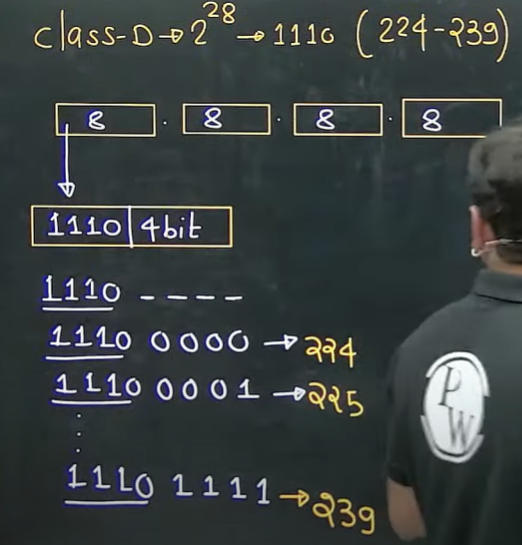 class-D → 2^28 → 1110 (224-239)
8 . 8 . 8 . 8
1110 | 4bit
1110 - - - -
1110 0000 → 224
1110 0001 → 225
1110 1111 → 239
PW